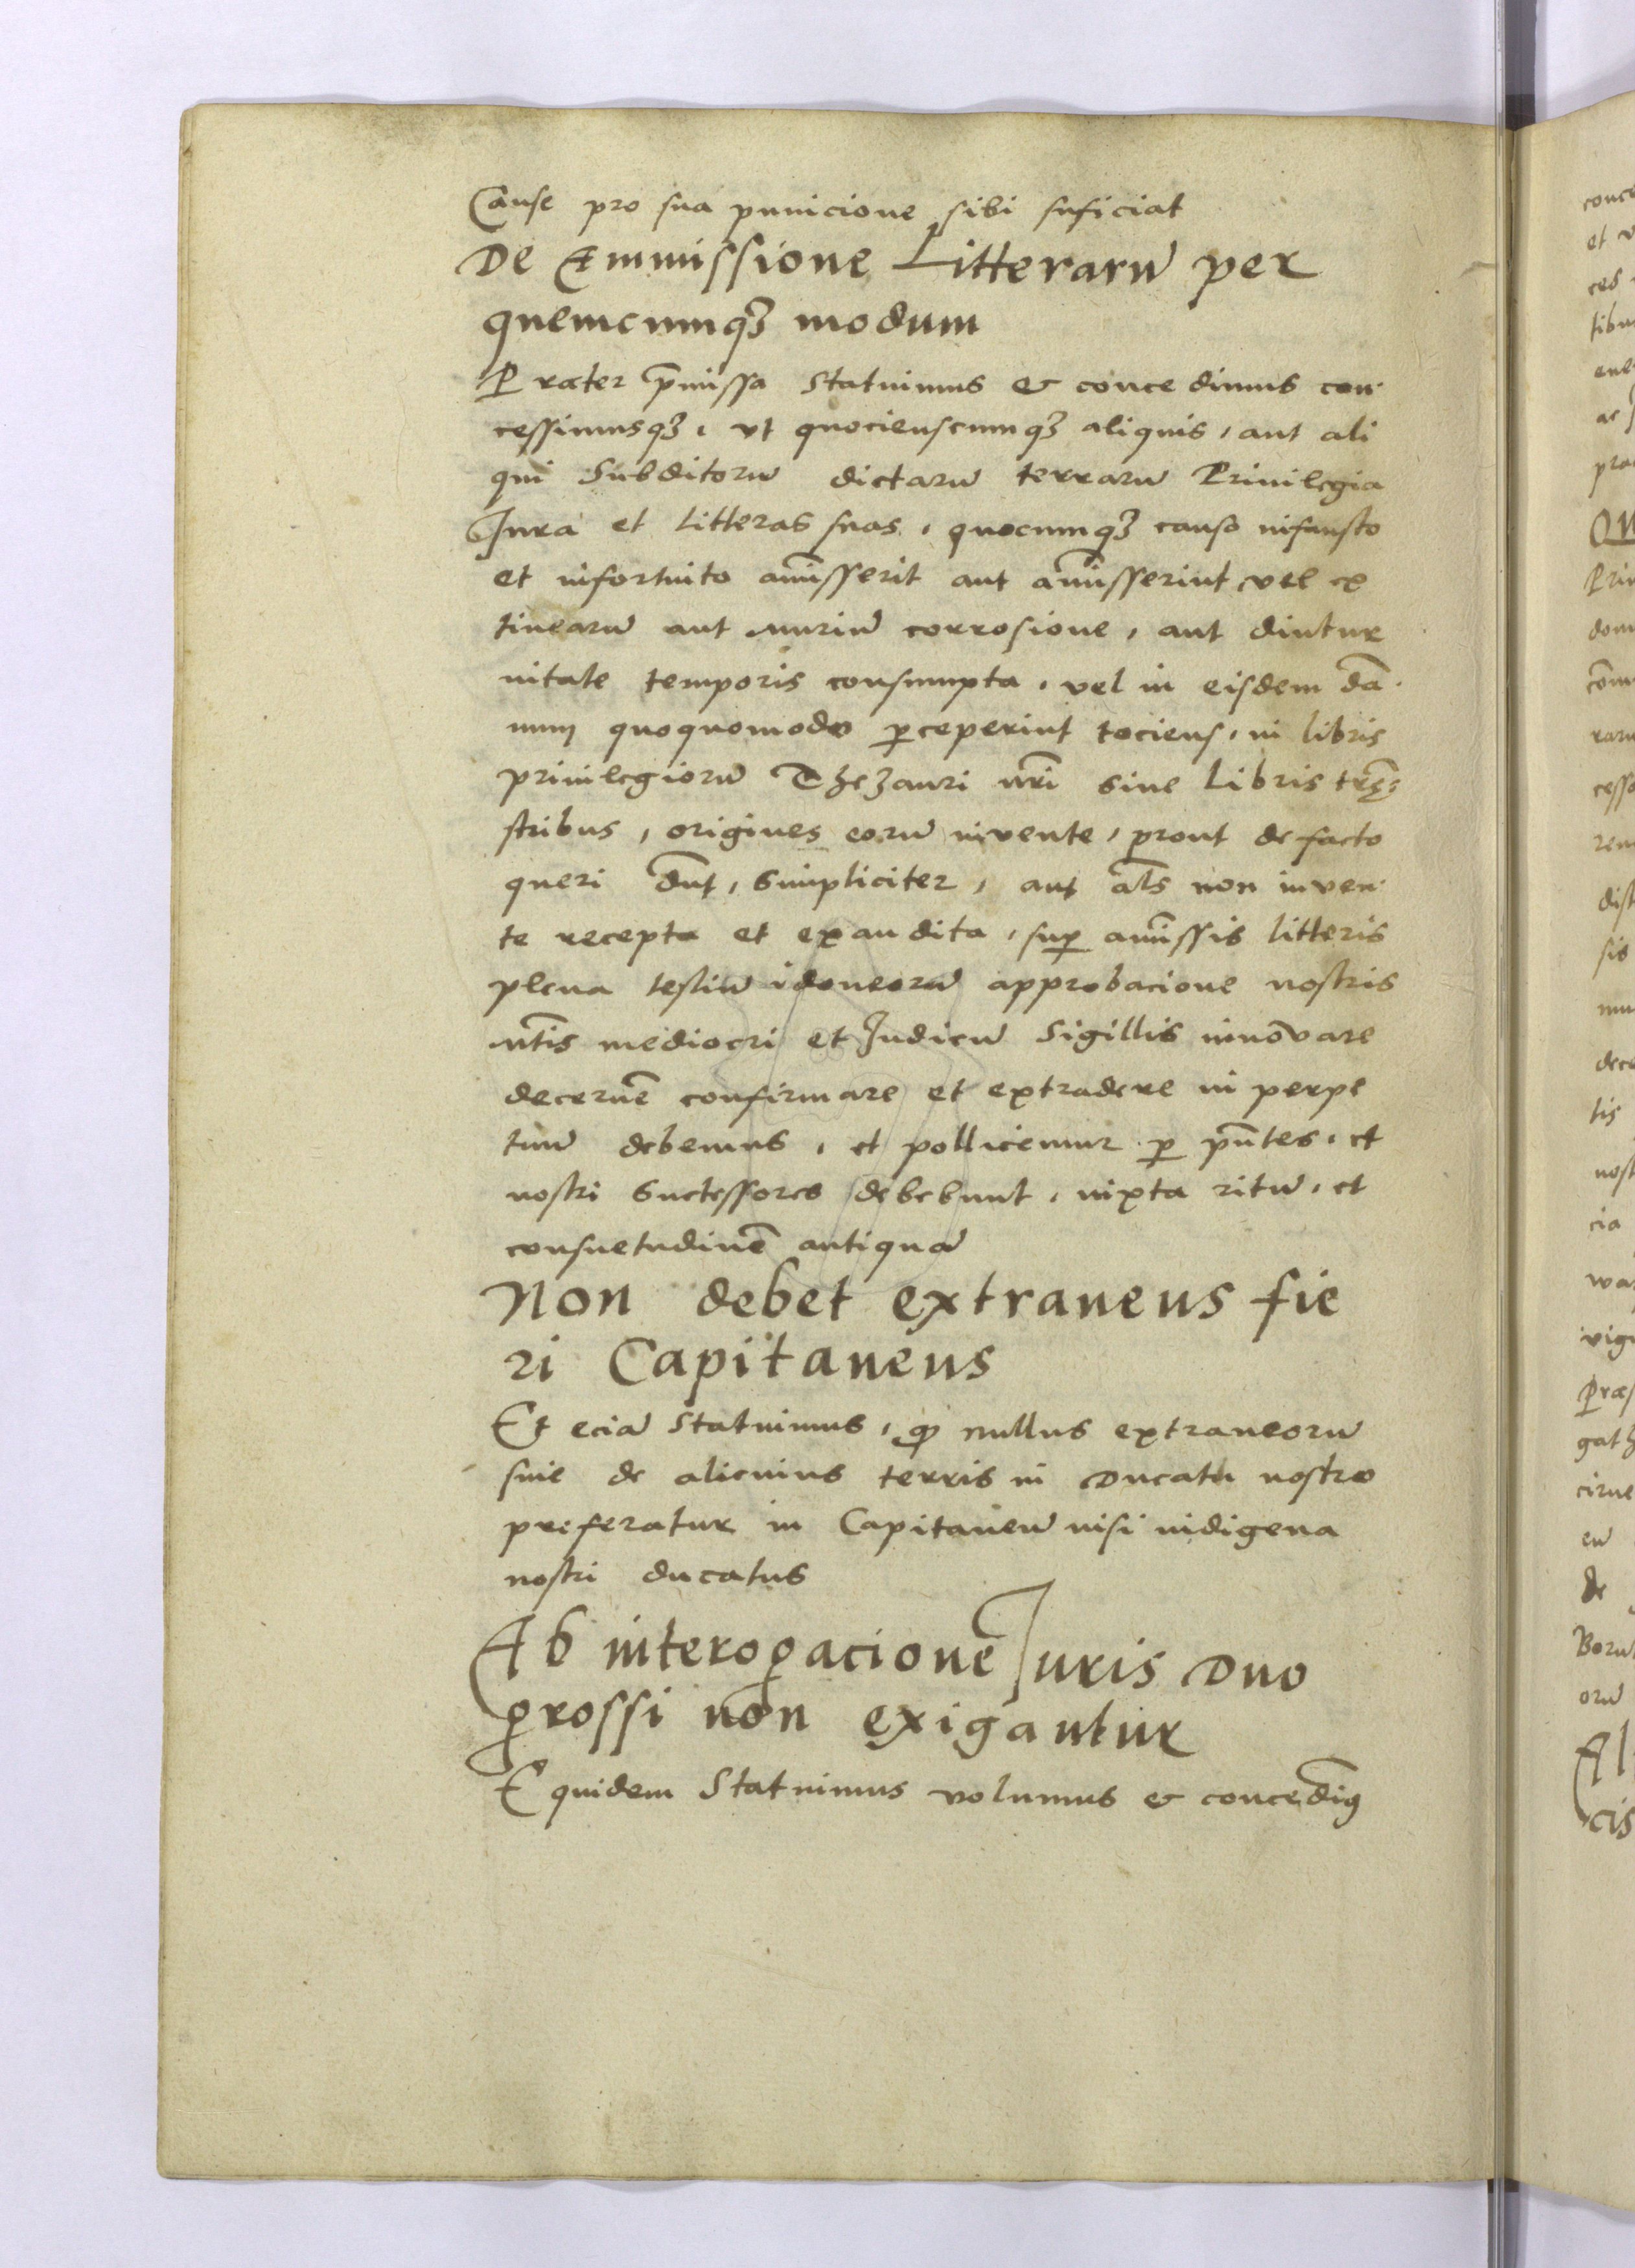 Cause pro sua punicione sibi suficiat
De Ammissione Litterarū per
quemcumqꝫ modum
Præter p̄missa Statuimus & concedimus con-
cessimusqꝫ, ut quocienscumqꝫ aliquis, aut ali
qui Subditorū dictarū terrarū Priuilegia
Iura et litteras suas, quocumqꝫ causo infausto
et infortuito amīsserit aut amīsserint vel ex
tinearū aut muriū corrosione, aut diutur
nitate temporis consumpta, vel in eisdem dā-
num quoquomodo ꝑceperint tociens, in libris
priuilegiorū Thezauri nr̄i siue Libris trē-
stribus, origines eorū invente, prout de facto
queri dn̄t, simpliciter, aut al̄s non inven-
te recepta et exaudita, suꝑ amīssis litteris
plena testiū idoneorū approbacione nostris
nt̄is mediocri et Iudicū Sigillis innovare
decernē confirmare et extradere in perpe
tuū debemus, et pollicemur ꝑ pn̄tes, et
nostri Suctessores debebunt, iuxta ritū, et
consuetudinē antiquā
Non debet extraneus fie
ri Capitaneus
Et eciā Statuimus, ꝙ nullus extraneorū
siue de alienius terris in Ducatu nostro
preferatur in Capitaneū nisi indigena
nostri ducatus
Ab interogacione Iuris Duo
grossi non exigantur
Equidem Statuimus volumus & concedim̄9
conce
et v
ces
tibu
ene
ac
pra
Qu
Pri
dom
com̄
raru
cesso
rem
dist
sis
mu
dece
tis
nost
cia
was
vigi
Præs
gath
cirue
eū
de
Boru
orū
Al
cis